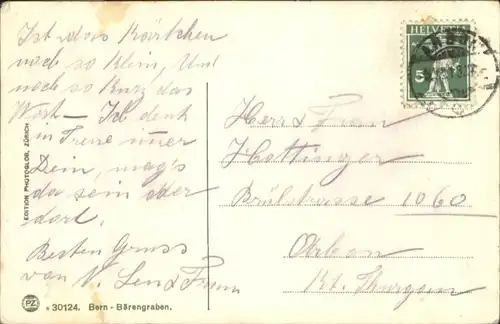 Ist das Kärtchen
noch so klein, Und
noch so kurz das
Wort – Ich denk
in Treue immer
Dein, mag's
da sein oder
dort.
Besten Gruss
von
Herr & Frau
Hottinger
Brülstrasse 1060
Arbon
Kt. Thurgau
HELVETIA
5
EDITION PHOTOGLOB, ZÜRICH
PZ
* 30124. Bern - Bärengraben.